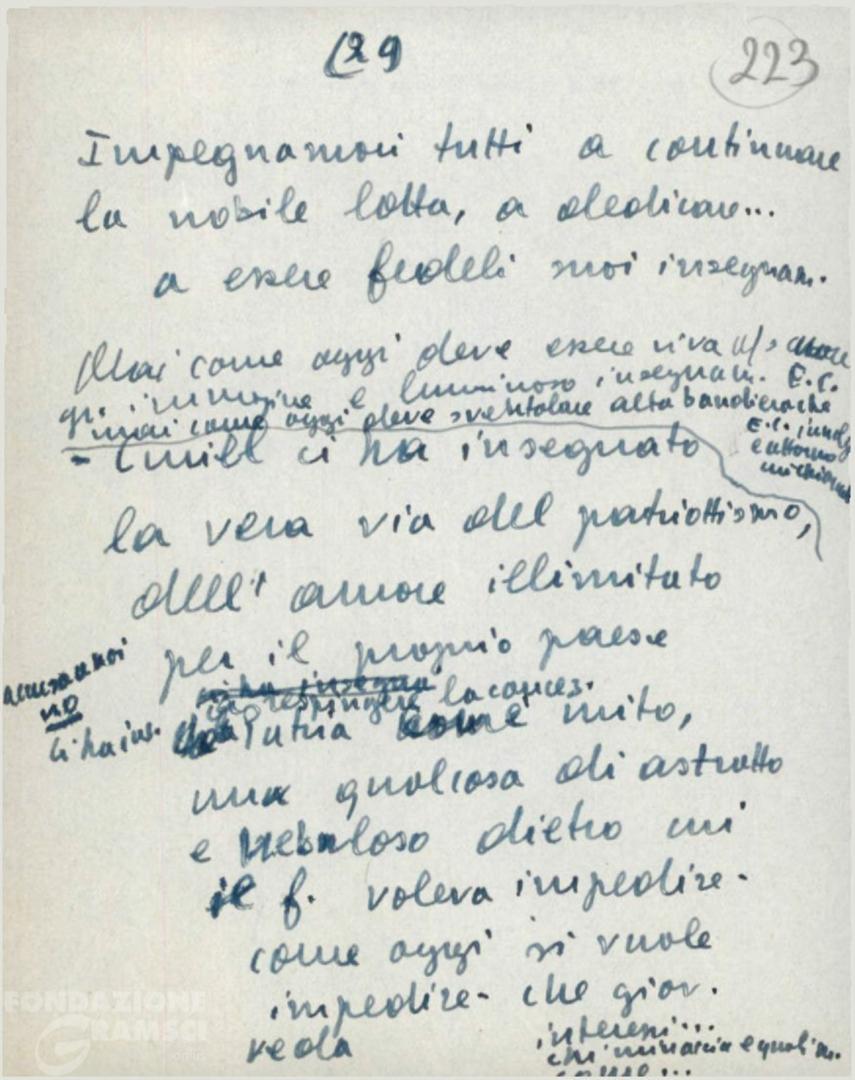 (29
223
Impegnamoci tutti a continuare
la nobile lotta, a dedicare...
a essere fedeli suoi insegnam.
Mai come oggi deve essere viva
immagine e luminoso insegnam. E.C.
mai come oggi deve sventolare alta bandiera che
E.C.
- Emilio ci ha insegnato
la vera via del patriottismo,
dell'amore illimitato
per il proprio paese
accusano noi
no
ci ha insegna
a respingere la concez.
ci ha ins.
Patria come mito,
una qualcosa di astratto
e nebuloso dietro cui
il f. voleva impedire -
come oggi si vuole
impedire - che giov.
veda
interessi...
chi minaccia e quali m.
come...
FONDAZIONE
GRAMSCI